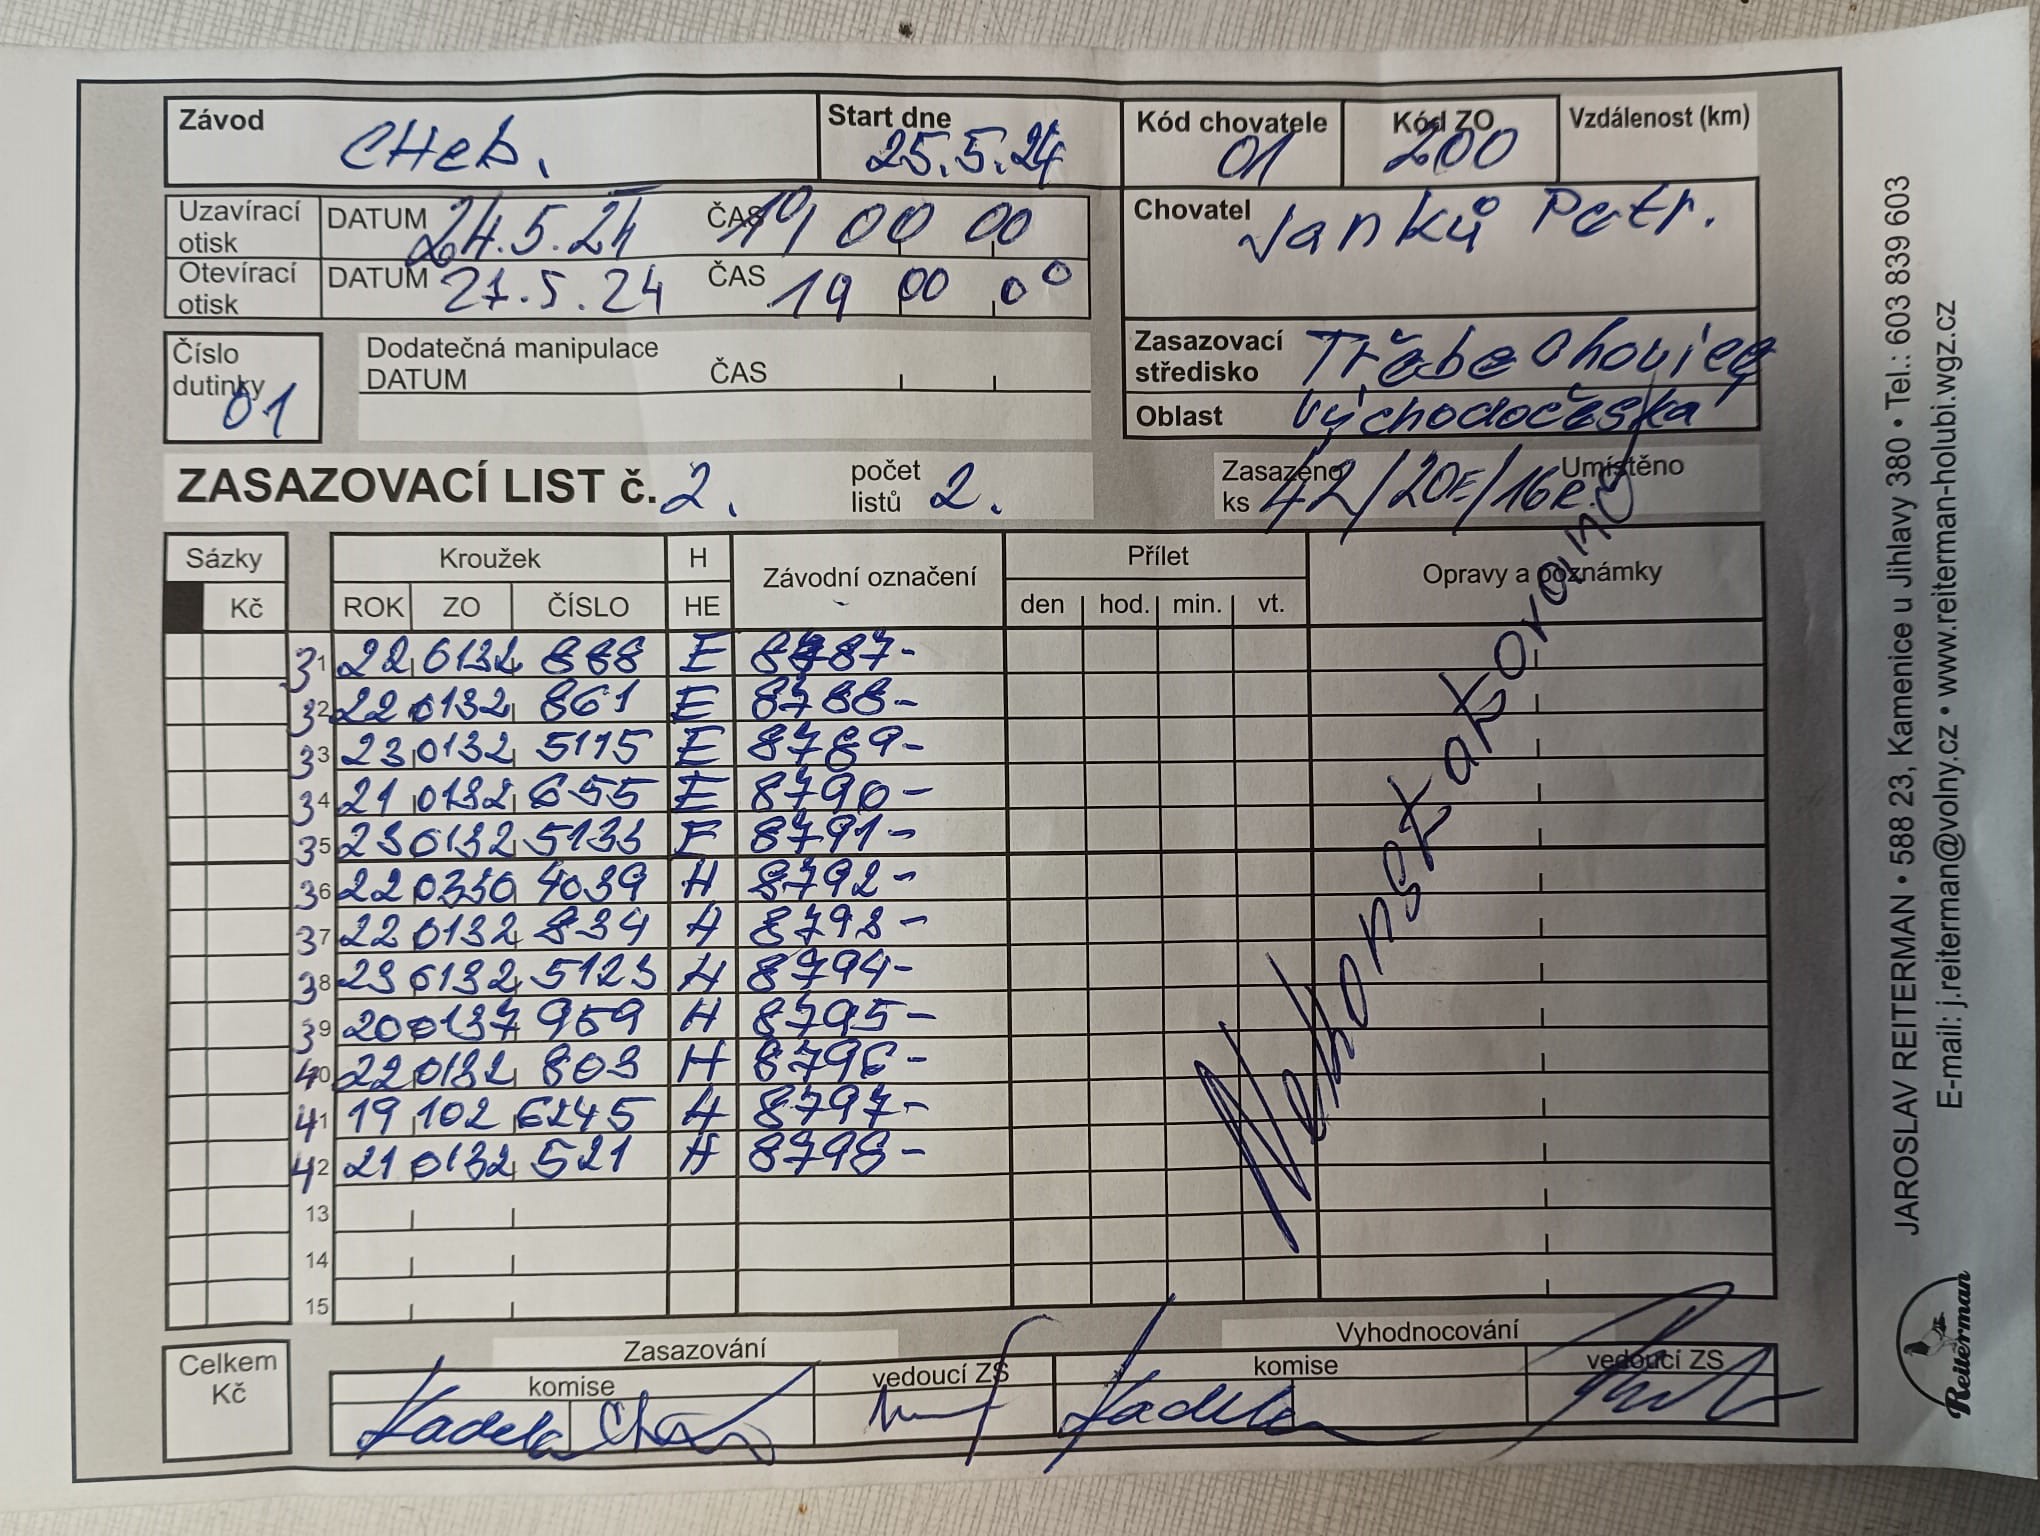 Závod CHeb. Start dne 25.5.24 Kód chovatele 01 Kód ZO 200 Vzdálenost (km)
Uzavírací otisk DATUM 24.5.24 ČAS 19 00 00
Otevírací otisk DATUM 27.5.24 ČAS 19 00 00
Chovatel Janků Petr.
Číslo dutinky 01
Dodatečná manipulace
DATUM ČAS
Zasazovací středisko Třebechovice
Oblast Východočeská
ZASAZOVACÍ LIST č. 2. počet listů 2. Zasazeno ks 42/20E/16R. Umístěno
Sázky Kroužek H Závodní označení Přílet Opravy a poznámky
Kč ROK ZO ČÍSLO HE den hod. min. vt.
31 22 0132 888 E 8787-
32 22 0132 861 E 8788-
33 23 0132 5115 E 8789-
34 21 0132 655 E 8790-
35 23 0132 5133 E 8791-
36 22 0330 4039 H 8792-
37 22 0132 834 H 8793-
38 23 0132 5123 H 8794-
39 20 0137 959 H 8795-
40 22 0132 803 H 8796-
41 19 102 6245 H 8797-
42 21 0132 521 H 8798-
13
14
15
Nekonstatováno
Celkem Kč
Zasazování Vyhodnocování
komise vedoucí ZS komise vedoucí ZS
Kadela Kadela
JAROSLAV REITERMAN • 588 23, Kamenice u Jihlavy 380 • Tel.: 603 839 603
E-mail: j.reiterman@volny.cz • www.reiterman-holubi.wgz.cz
Reiterman